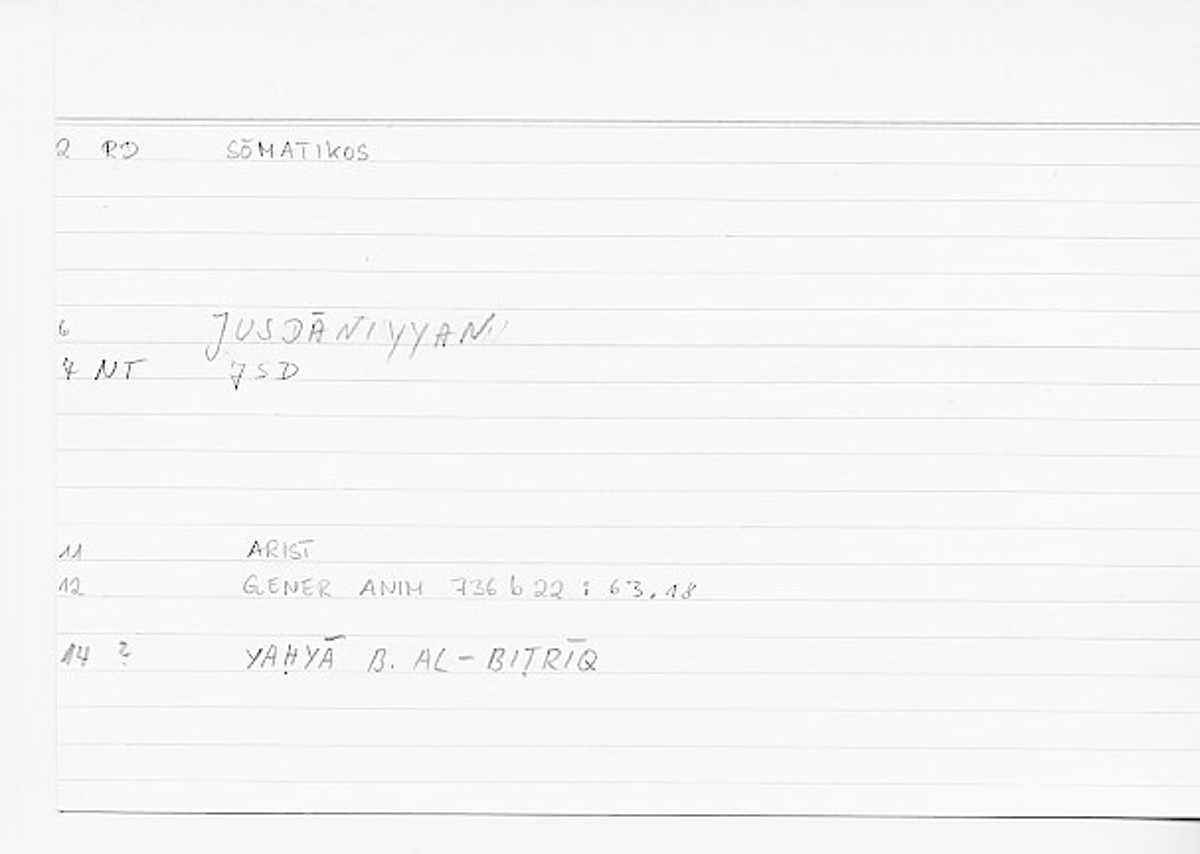 2 RD SŌMATIKOS
6 JUSDĀNIYYAN
7 NT JSD
11 ARIST
12 GENER ANIM 736 b 22 : 63.18
14 ? YAḤYĀ B. AL-BIṬRĪQ